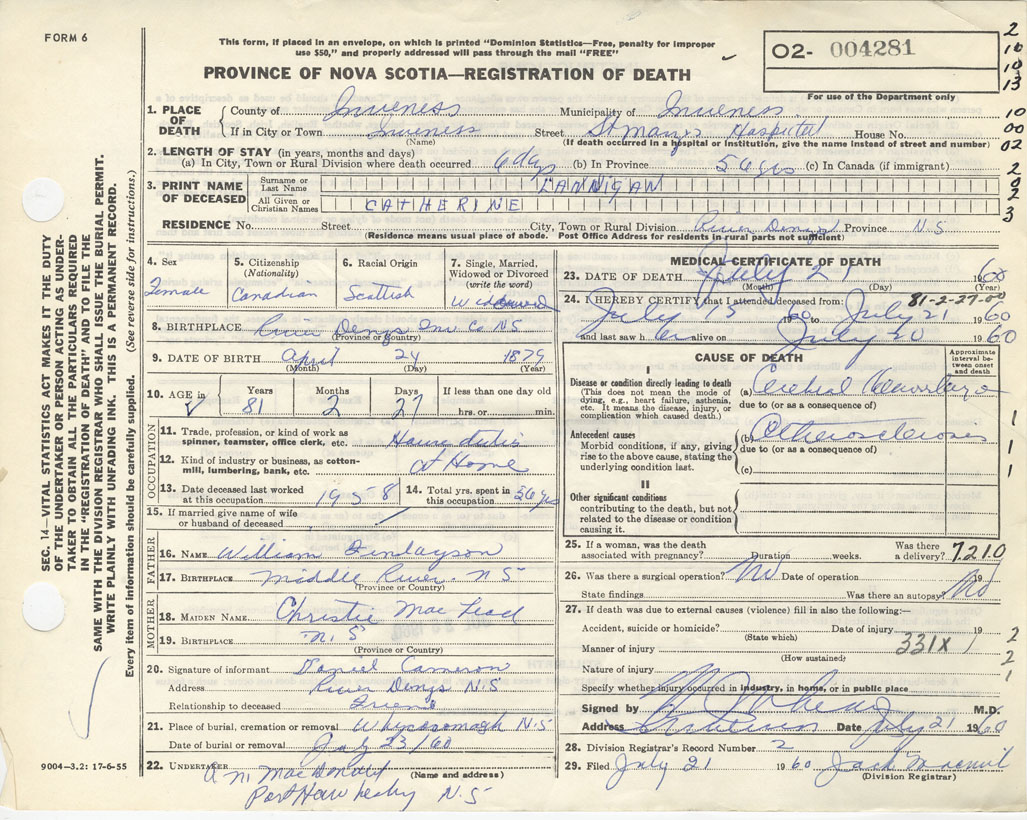 FORM 6
This form, if placed in an envelope, on which is printed "Dominion Statistics—Free, penalty for improper
use $50," and properly addressed will pass through the mail "FREE"
PROVINCE OF NOVA SCOTIA—REGISTRATION OF DEATH
02- 004281
For use of the Department only
2
10
10
13
10
00
02
2
3
1. PLACE OF DEATH County of Inverness Municipality of Inverness
If in City or Town Inverness Street St Marys Hospital House No.
(Name) (If death occurred in a hospital or Institution, give the name instead of street and number)
2. LENGTH OF STAY (in years, months and days)
(a) In City, Town or Rural Division where death occurred 6 days (b) In Province 56 yrs (c) In Canada (if immigrant)
3. PRINT NAME OF DECEASED Surname or Last Name LANNIGAN
All Given or Christian Names CATHERINE
RESIDENCE No. Street City, Town or Rural Division River Denys Province N.S
(Residence means usual place of abode. Post Office Address for residents in rural parts not sufficient)
4. Sex Female
5. Citizenship (Nationality) Canadian
6. Racial Origin Scottish
7. Single, Married, Widowed or Divorced (write the word) Widowed
8. BIRTHPLACE River Denys Inv Co NS
(Province or Country)
9. DATE OF BIRTH April 24 1879
(Month) (Day) (Year)
10. AGE in Years 81 Months 2 Days 27 If less than one day old hrs. or min.
OCCUPATION
11. Trade, profession, or kind of work as spinner, teamster, office clerk, etc. House duties
12. Kind of industry or business, as cotton-mill, lumbering, bank, etc. at Home
13. Date deceased last worked at this occupation 1958 14. Total yrs. spent in this occupation 56 yrs
15. If married give name of wife or husband of deceased
FATHER
16. NAME William Finlayson
17. BIRTHPLACE Middle River. N S
(Province or Country)
MOTHER
18. MAIDEN NAME Christie Mac Leod
19. BIRTHPLACE N. S
(Province or Country)
20. Signature of informant Daniel Cameron
Address River Denys N.S
Relationship to deceased Friend
21. Place of burial, cremation or removal Whycocomagh N.S
Date of burial or removal July 23/60
22. UNDERTAKER MacDonald
(Name and address)
Port Hawkesbury N.S
MEDICAL CERTIFICATE OF DEATH
23. DATE OF DEATH July 21 1960
(Month) (Day)
81-2-27-00
24. I HEREBY CERTIFY that I attended deceased from:
July 15 1960 to July 21 1960
and last saw h er alive on July 20 1960
CAUSE OF DEATH
Approximate interval between onset and death
I
Disease or condition directly leading to death
(This does not mean the mode of dying, e.g., heart failure, asthenia, etc. It means the disease, injury, or complication which caused death.)
(a) Cerebral Hemorrhage
due to (or as a consequence of)
Antecedent causes
Morbid conditions, if any, giving rise to the above cause, stating the underlying condition last.
(b) Atherosclerosis
due to (or as a consequence of)
(c)
II
Other significant conditions
contributing to the death, but not related to the disease or condition causing it.
1
1
1
25. If a woman, was the death associated with pregnancy? Duration weeks. Was there a delivery? 7210
26. Was there a surgical operation? No Date of operation 19
State findings Was there an autopsy? No
27. If death was due to external causes (violence) fill in also the following:—
Accident, suicide or homicide? Date of injury 19
(State which)
Manner of injury 331X
(How sustained)
Nature of injury
Specify whether injury occurred in industry, in home, or in public place
2
2
1
Signed by M.D.
Address Date July 21 1960
28. Division Registrar's Record Number 2
29. Filed July 21 1960 Jack Macneil
(Division Registrar)
SEC. 14—VITAL STATISTICS ACT MAKES IT THE DUTY
OF THE UNDERTAKER OR PERSON ACTING AS UNDER-
TAKER TO OBTAIN ALL THE PARTICULARS REQUIRED
IN THE "REGISTRATION OF DEATH" AND TO FILE THE
SAME WITH THE DIVISION REGISTRAR WHO SHALL ISSUE THE BURIAL PERMIT.
WRITE PLAINLY WITH UNFADING INK. THIS IS A PERMANENT RECORD.
Every item of information should be carefully supplied. (See reverse side for instructions.)
9004-3.2: 17-6-55